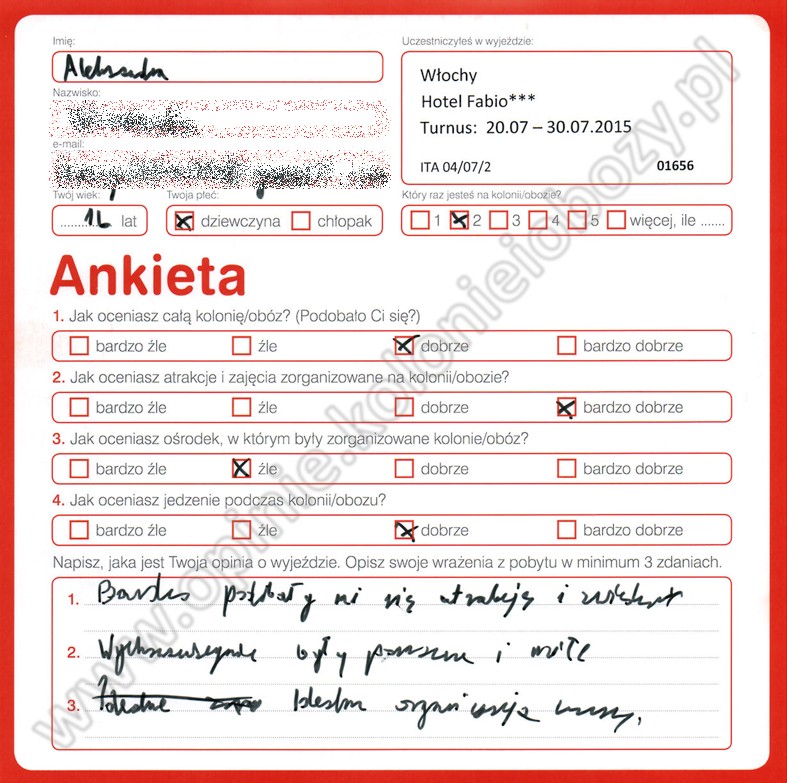 Imię:
Uczestniczyłeś w wyjeździe:
Aleksandra
Włochy
Nazwisko:
Hotel Fabio***
Turnus: 20.07 – 30.07.2015
e-mail:
ITA 04/07/2 01656
Twój wiek: Twoja płeć: Który raz jesteś na kolonii/obozie?
lat dziewczyna chłopak 1 2 3 4 5 więcej, ile .......
Ankieta
1. Jak oceniasz całą kolonię/obóz? (Podobało Ci się?)
bardzo źle źle dobrze bardzo dobrze
2. Jak oceniasz atrakcje i zajęcia zorganizowane na kolonii/obozie?
bardzo źle źle dobrze bardzo dobrze
3. Jak oceniasz ośrodek, w którym były zorganizowane kolonie/obóz?
bardzo źle źle dobrze bardzo dobrze
4. Jak oceniasz jedzenie podczas kolonii/obozu?
bardzo źle źle dobrze bardzo dobrze
Napisz, jaka jest Twoja opinia o wyjeździe. Opisz swoje wrażenia z pobytu w minimum 3 zdaniach.
1. Bardzo podobały mi się atrakcje i
2. były pomocne i miłe
3. Idealna organizacja
www.opinie.kolonieiobozy.pl